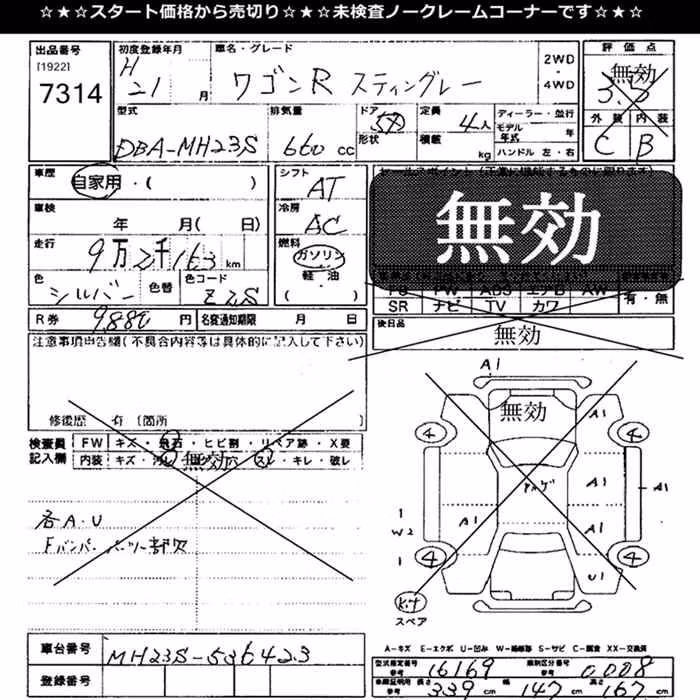 ☆★☆★スタート価格から売切り☆★☆★未検査ノークレームコーナーです☆★☆
出品番号
[1922]
7314
初度登録年月
H
21 月
車名・グレード
ワゴンR スティングレー
2WD
・
4WD
評価点
無効
3.5
外装 内装
C B
型式
DBA-MH23S
排気量
660 cc
ドア
5D
形状
定員
4人
積載
kg
ディーラー・並行
モデル年式 年
ハンドル 左・右
車歴
自家用・( )
車検
年 月( 日)
走行
9万2千163 km
色
シルバー
色替
色コード
Z2S
シフト
AT
冷房
AC
燃料
ガソリン
軽・油
( )
無効
PS PW ABS エアB AW
SR ナビ TV カワ
有・無
R券 9880 円
名変通知期限 月 日
後日品
無効
注意事項申告欄(不具合内容等は具体的に記入して下さい)
修復歴 有 (箇所
検査員記入欄
FW キズ・飛石・ヒビ割・リペア跡・X要
内装 キズ・汚レ・コゲ穴・スレ・キレ・破レ
無効
各A・U
Fバンパーパーツ一部欠
A1
無効
A1
4
4
A1
A1
1
W2
A1
A1
1
4
4
U1
キット
スペア
A-キズ E-エクボ U-凹み W-補修跡 S-サビ C-腐食 XX-交換済
車台番号 MH23S-536423
登録番号
型式指定番号 参考 16169
類別区分番号 参考 0008
車両証明用 参考 長さ 339 cm 幅 147 cm 高さ 167 cm